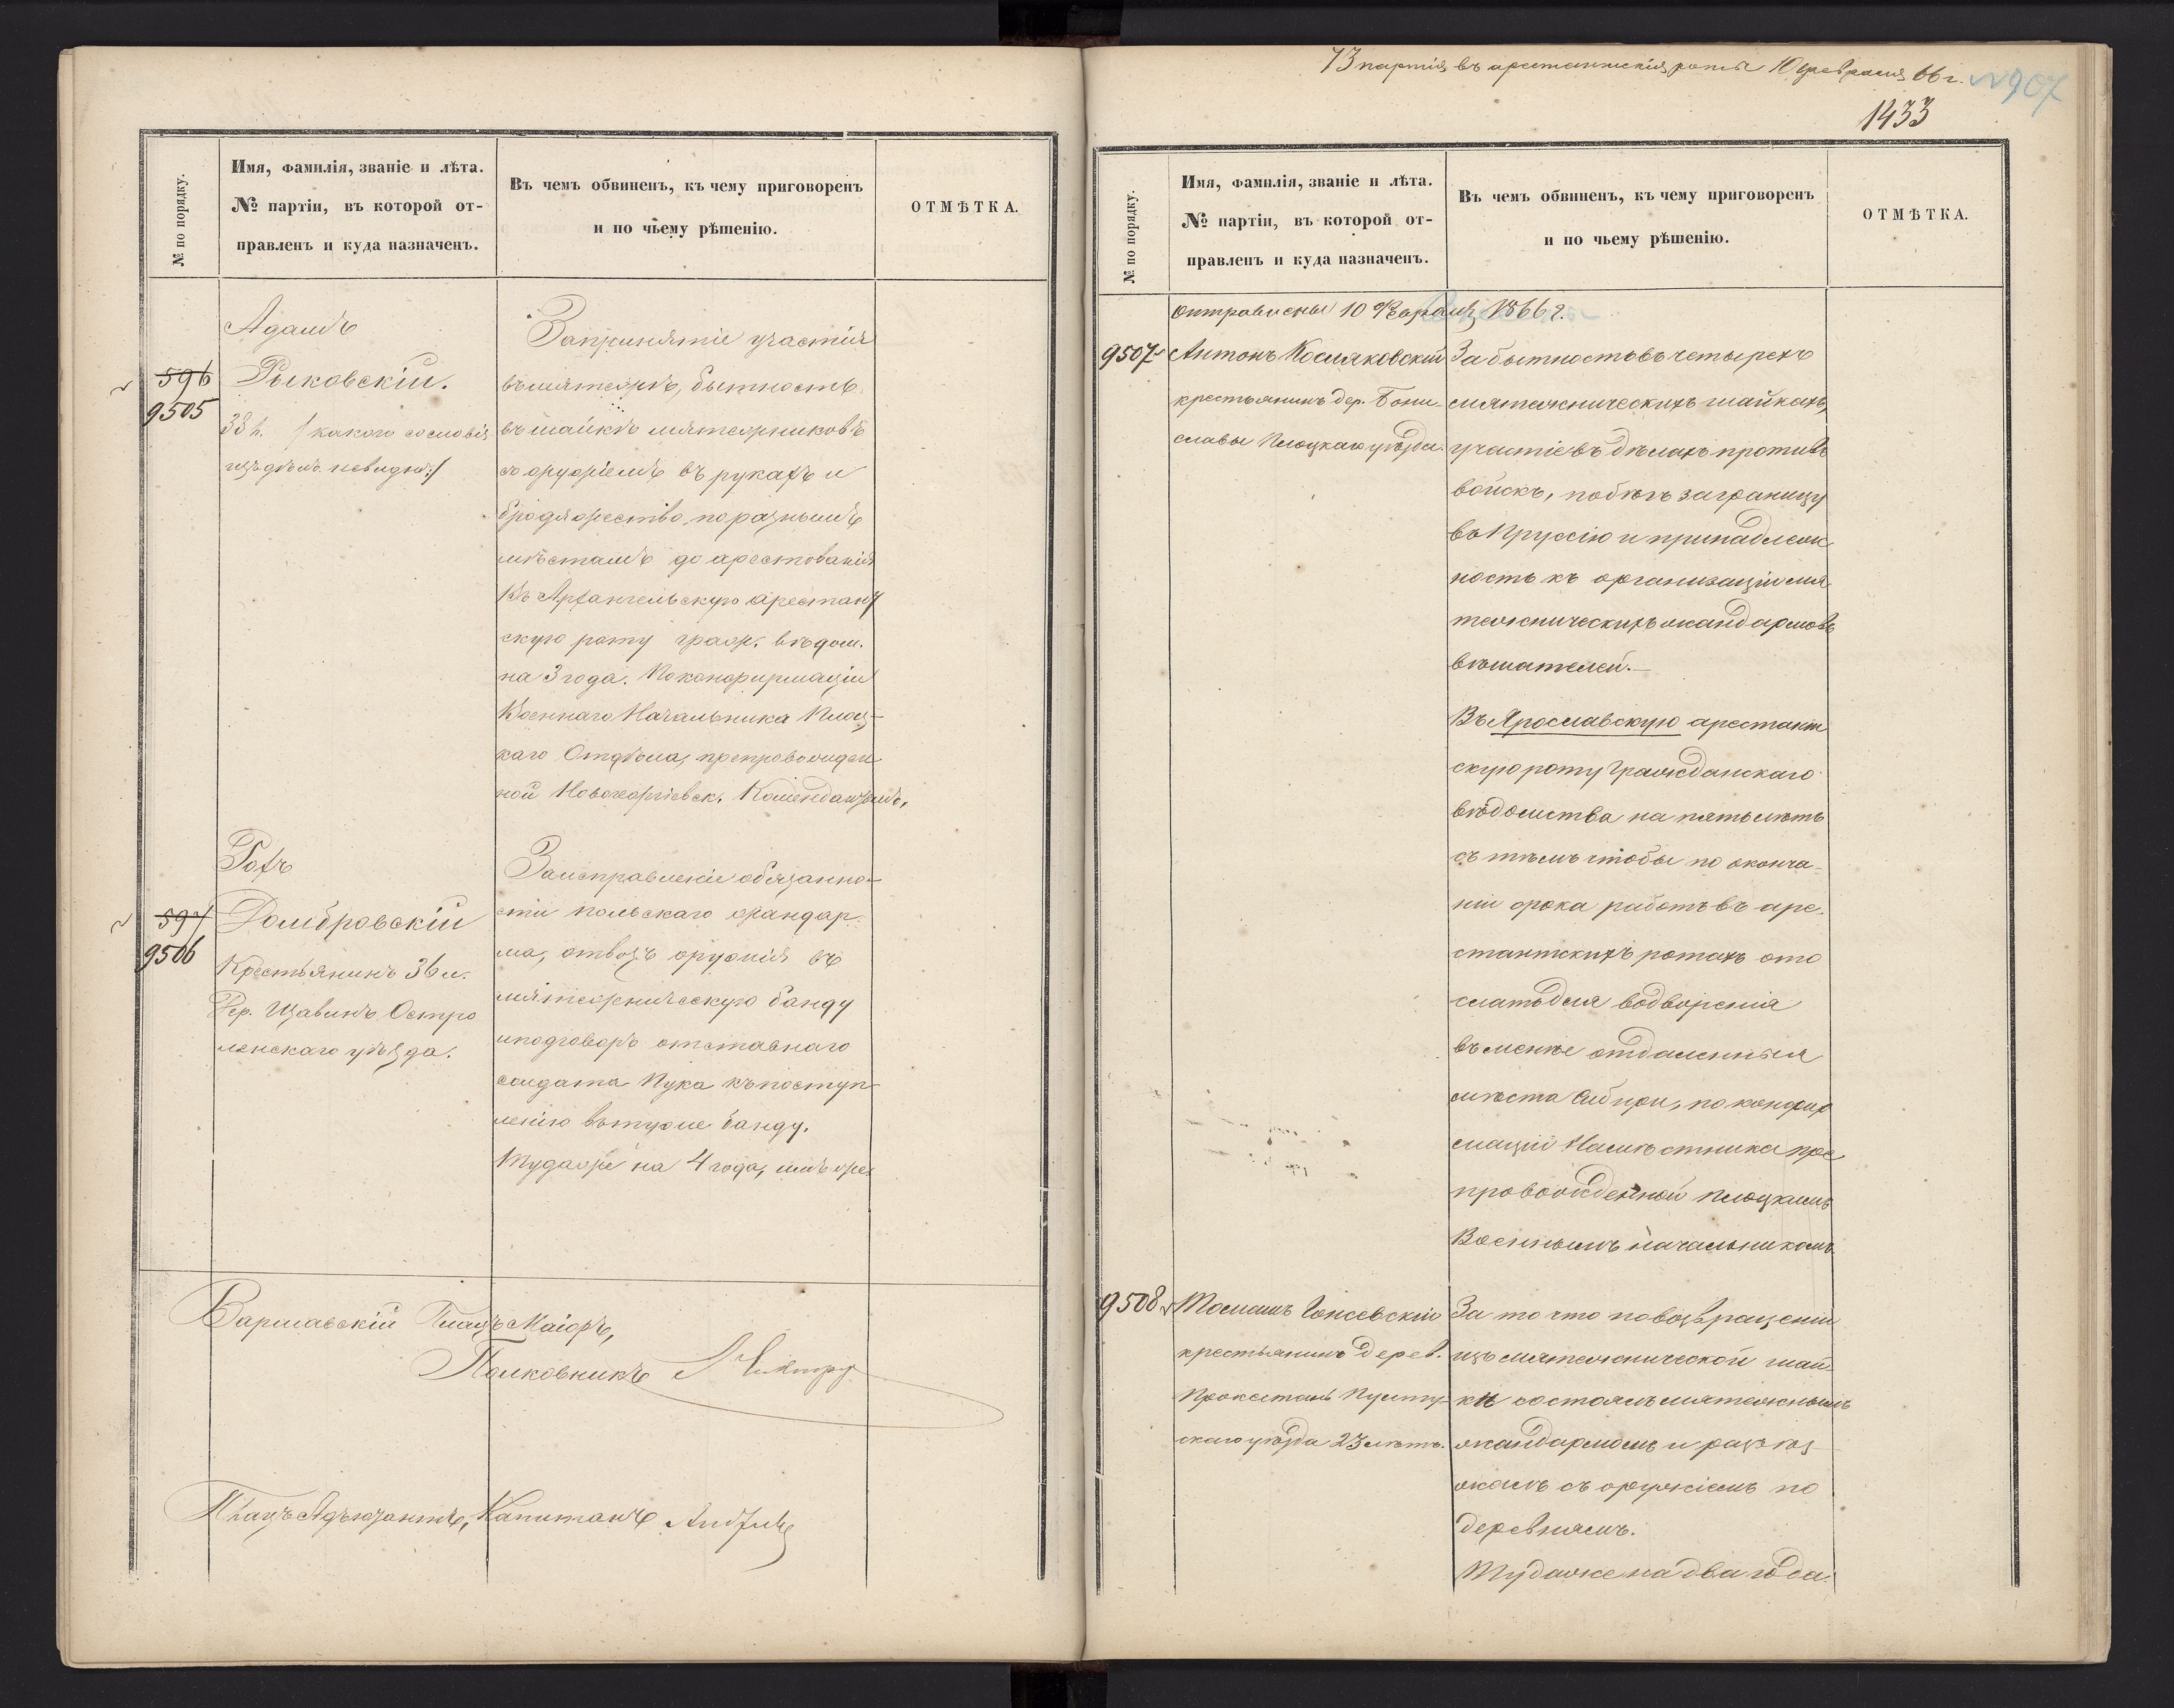 № по порядку.
Имя, фамилія, званіе и лѣта.
№ партіи, въ которой от-
правленъ и куда назначенъ.
Въ чемъ обвиненъ, къ чему приговоренъ
и по чьему рѣшенію.
ОТМѢТКА.
596
9505
Адамъ
Рыковскій.
38 л. /какого сословія
изъ дѣлъ невидно:/
За принятіе участія
въ мятежѣ, бытность
въ шайкѣ мятежниковъ
съ оружіемъ въ рукахъ и
бродяжество по разнымъ
мѣстамъ до арестованія
Въ Архангельскую арестант
скую роту граж. вѣдом.
на 3 года. По конфирмаціи
Военнаго Начальника Плоц-
каго Отдѣла, препровожден
ной Новогеоргіевск. Комендантомъ.
597
9506
Рохъ
Домбровскій
Крестьянинъ 36 л.
Дер. Щавинъ Остро
ленскаго уѣзда.
За исправленіе обязанно-
сти польскаго жандар-
ма, отвозъ оружія въ
мятежническую банду
и подговоръ отставнаго
солдата Пука къ поступ-
ленію въ туже банду.
Туда же на 4 года, имъ же
Варшавскій Плацъ Маіоръ,
Полковникъ
Плацъ Адъютантъ, Капитанъ
73 партія въ арестантскія роты 10 февраля 66 г. №907
1433
№ по порядку.
Имя, фамилія, званіе и лѣта.
№ партіи, въ которой от-
правленъ и куда назначенъ.
Въ чемъ обвиненъ, къ чему приговоренъ
и по чьему рѣшенію.
ОТМѢТКА.
Отправлены 10 Февраля 1866 г.
9507
Антонъ Космяковскій
крестьянинъ дер. Бони-
славы Плоцкаго уѣзда.
За бытность въ четырехъ
мятежническихъ шайкахъ,
участіе въ дѣлахъ противъ
войскъ, побѣгъ за границу
въ Пруссію и принадлеж
ность къ организаціи мя-
тежническихъ жандармовъ
вѣшателей.—
Въ Ярославскую арестант
скую роту Гражданскаго
вѣдомства на пять лѣтъ
съ тѣмъ чтобы по оконча-
ніи срока работъ въ аре-
стантскихъ ротахъ ото
слать для водворенія
въ менѣе отдаленныя
мѣста Сибири, по конфир
маціи Намѣстника пре
провожденной Плоцкимъ
Военнымъ Начальникомъ.
9508
Томашъ Гонсевскій
крестьянинъ дерев.
Пулту-
скаго уѣзда 23 лѣтъ.
За то что по возвращеніи
изъ мятежнической шай-
ки состоялъ мятежнымъ
жандармомъ и разъѣз-
жалъ съ оружіемъ по
деревнямъ.
Туда же на два года.